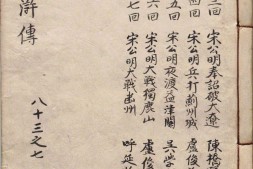 三回 宋公明奉詔破大遼 陳橋
四回 宋公明兵打薊州城 盧俊
五回 宋公明夜渡益津關 吳學
六回 宋公明大戰獨鹿山 盧俊
七回 宋公明大戰幽州 呼延
滸傳
八十三之七